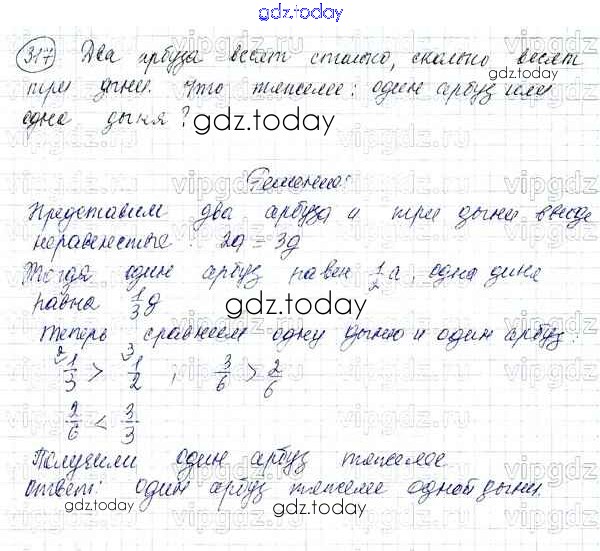 gdz.today
317 Два арбуза весят столько, сколько весят
три дыни. Что тяжелее: один арбуз или
gdz.today
одна дыня?
gdz.today
Решение:
Представим два арбуза и три дыни ввиде
неравенства: 2а = 3д
Тогда один арбуз равен 1/2 а, одна дыня
равна 1/3 д
gdz.today
Теперь сравним одну дыню и один арбуз:
2 1/3 > 3 1/2 , 3/6 > 2/6
2/6 < 3/3
Получили один арбуз тяжелее
ответ: один арбуз тяжелее одной дыни.
gdz.today